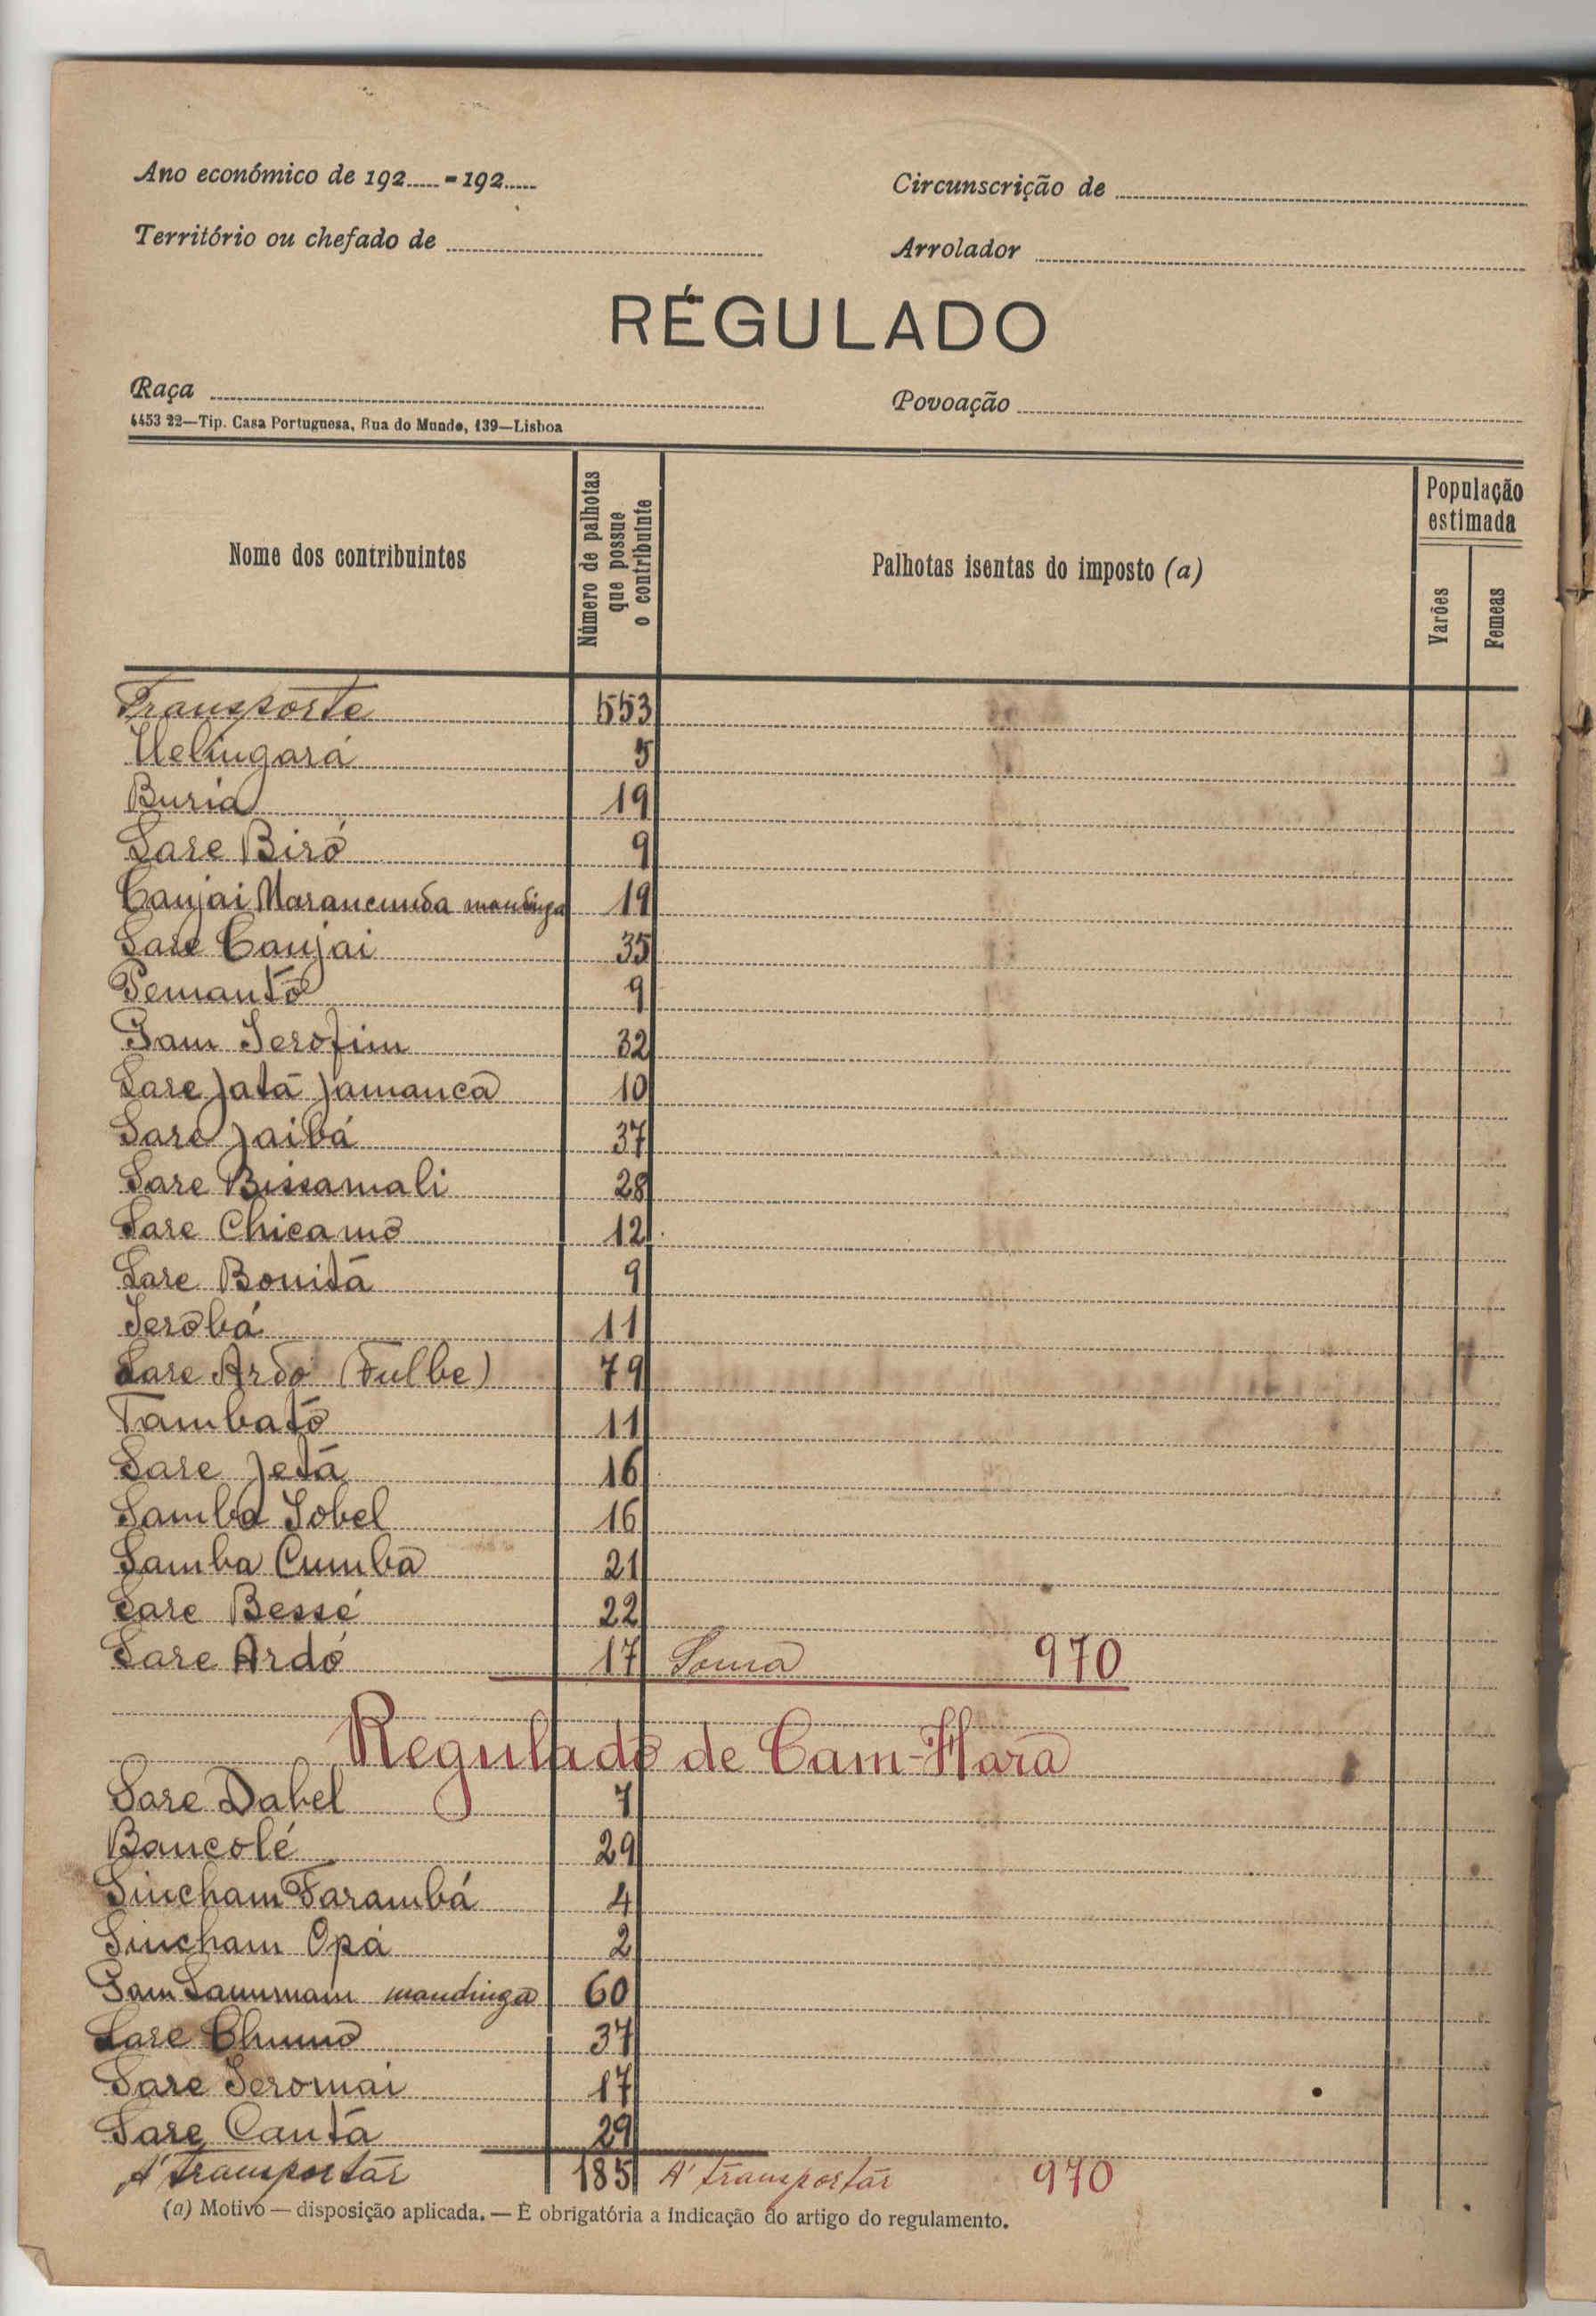 Ano económico de 192..... - 192.....
Circunscrição de
Território ou chefado de
Arrolador
RÉGULADO
Raça
Povoação
4453 22—Tip. Casa Portuguesa, Rua do Mundo, 139—Lisboa
Nome dos contribuintes
Número de palhotas que possue o contribuinte
Palhotas isentas do imposto (a)
População estimada
Varões
Femeas
Transporte 553
Uelingará 5
Buria 19
Sare Biró 9
Canjai Marancunda mandinga 19
Sare Canjai 35
Pemanto 9
Gam Serofim 32
Sare Jatá Jamanca 10
Sare Jaibá 37
Sare Bissamali 28
Sare Chicamo 12
Sare Bonitá 9
Serobá 11
Sare Ardo (Fulbe) 79
Tambato 11
Sare Jetá 16
Samba Sobel 16
Samba Cumba 21
Sare Bessé 22
Sare Ardó 17 Soma 970
Regulado de Cam-Hara
Sare Dabel 7
Bancolé 29
Sincham Farambá 4
Sincham Opá 2
Gam mandinga 60
Sare Chumo 37
Sare Seromai 17
Sare Cantá 29
A' transportar 185 A' transportar 970
(a) Motivo — disposição aplicada. — E obrigatória a indicação do artigo do regulamento.